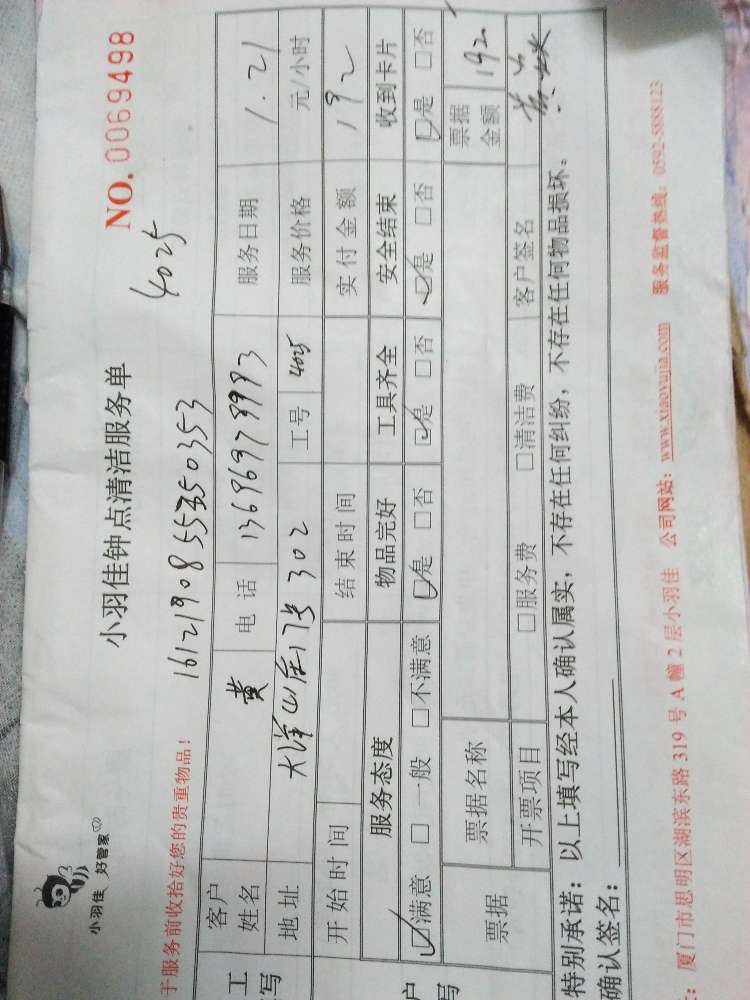 小羽佳 好管家
小羽佳钟点清洁服务单
NO. 0069498
4025
于服务前收拾好您的贵重物品！
客户姓名 黄 电话 服务日期 1.21
地址 302 工号 4025 服务价格 元/小时
开始时间 结束时间 实付金额 192
服务态度 物品完好 工具齐全 安全结束 收到卡片
☑满意 □一般 □不满意 ☑是 □否 ☑是 □否 ☑是 □否 ☑是 □否
票据 票据名称 票据金额 192
开票项目 □服务费 □清洁费 客户签名
特别承诺：以上填写经本人确认属实，不存在任何纠纷，不存在任何物品损坏。
确认签名：
厦门市思明区湖滨东路 319 号 A 幢 2 层小羽佳 公司网站：www.xiaoyujia.com 服务监督热线：0592-5888123